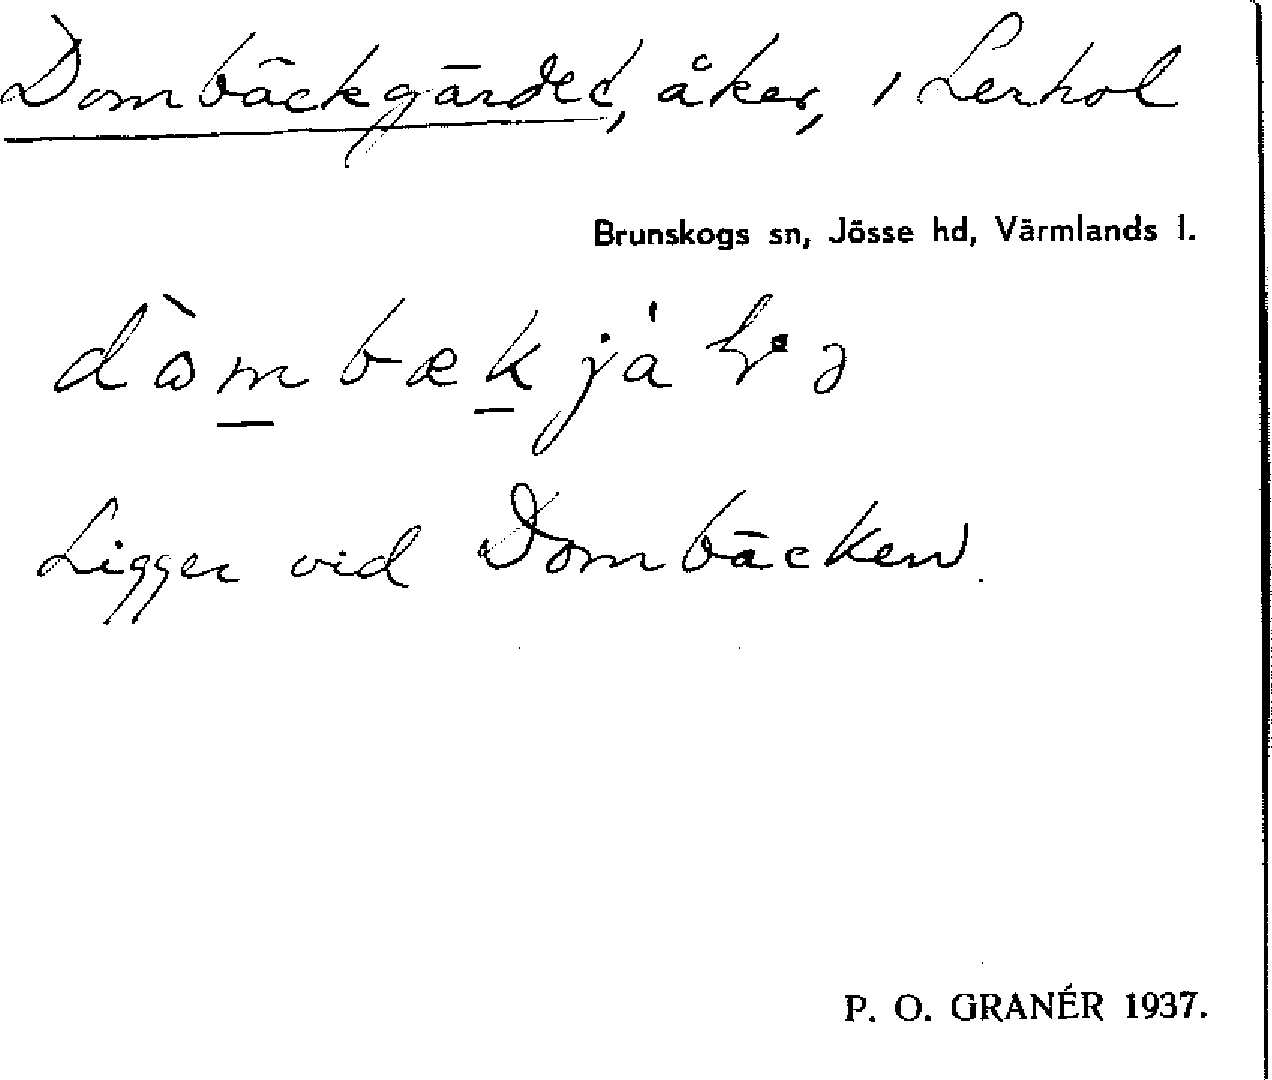 Dombäckgärdet, åker, i Lerhol
Brunskogs sn, Jösse hd, Värmlands l.
Ligger vid Dombäcken.
P. O. GRANÉR 1937.